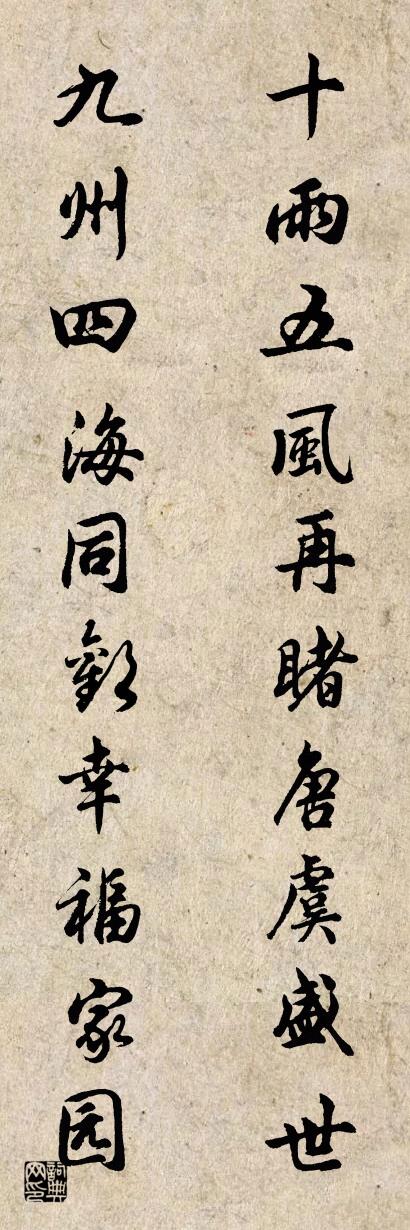 十雨五風再睹唐虞盛世
九州四海同歡幸福家园
詞典
网印